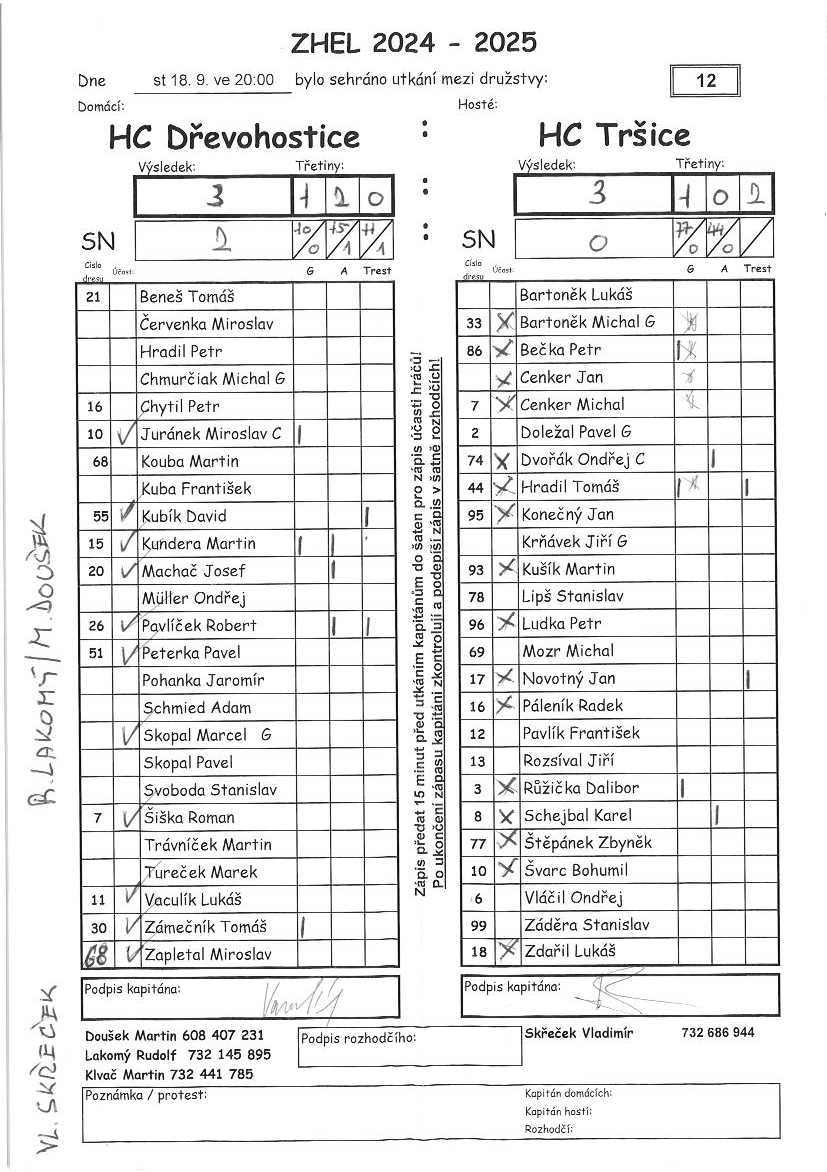 ZHEL 2024 - 2025
Dne st 18. 9. ve 20:00 bylo sehráno utkání mezi družstvy: 12
Domácí: Hosté:
HC Dřevohostice : HC Tršice
Výsledek: Třetiny: Výsledek: Třetiny:
3 1 2 0 : 3 1 0 2
SN 2 10/0 15/1 11/1 : SN 0 77/0 44/0 /
Číslo dresu Účast: G A Trest Číslo dresu Účast: G A Trest
21 Beneš Tomáš
Červenka Miroslav
Hradil Petr
Chmurčiak Michal G
16 Chytil Petr
10 ✓ Juránek Miroslav C |
68 Kouba Martin
Kuba František
55 ✓ Kubík David |
15 ✓ Kundera Martin | |
20 ✓ Machač Josef |
Müller Ondřej
26 ✓ Pavlíček Robert | |
51 ✓ Peterka Pavel
Pohanka Jaromír
Schmied Adam
✓ Skopal Marcel G
Skopal Pavel
Svoboda Stanislav
7 ✓ Šiška Roman
Trávníček Martin
Tureček Marek
11 ✓ Vaculík Lukáš
30 ✓ Zámečník Tomáš |
68 ✓ Zapletal Miroslav
Zápis předat 15 minut před utkáním kapitánům do šaten pro zápis účasti hráčů!
Po ukončení zápasu kapitáni zkontrolují a podepíší zápis v šatně rozhodčích!
Bartoněk Lukáš
33 X Bartoněk Michal G
86 X Bečka Petr |
X Cenker Jan
7 X Cenker Michal
2 Doležal Pavel G
74 X Dvořák Ondřej C |
44 X Hradil Tomáš | |
95 X Konečný Jan
Krňávek Jiří G
93 X Kušík Martin
78 Lipš Stanislav
96 X Ludka Petr
69 Mozr Michal
17 X Novotný Jan |
16 X Páleník Radek
12 Pavlík František
13 Rozsíval Jiří
3 X Růžička Dalibor |
8 X Schejbal Karel |
77 X Štěpánek Zbyněk
10 X Švarc Bohumil
6 Vláčil Ondřej
99 Záděra Stanislav
18 X Zdařil Lukáš
R. LAKOMÝ / M. DOUŠEK
VL. SKŘEČEK
Podpis kapitána: Podpis kapitána:
Doušek Martin 608 407 231
Lakomý Rudolf 732 145 895
Klvač Martin 732 441 785
Podpis rozhodčího:
Skřeček Vladimír 732 686 944
Poznámka / protest:
Kapitán domácích:
Kapitán hostí:
Rozhodčí: